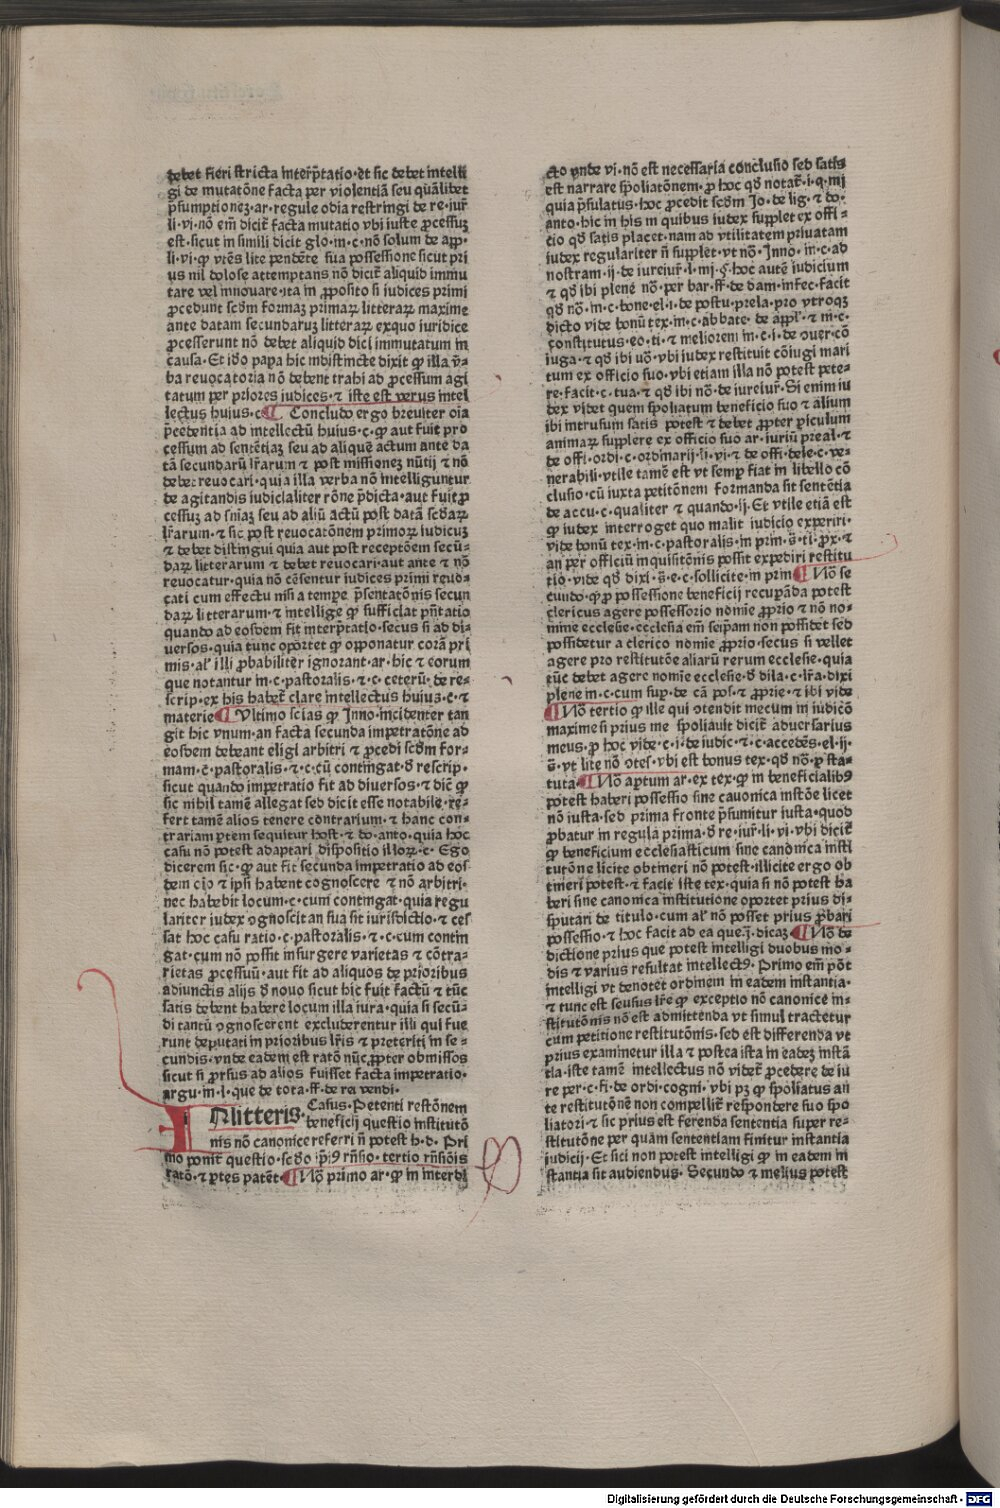 debet fieri stricta interp̄tatio·et sic debet intelli
gi de mutatōne facta per violentiā seu quālibet
p̄sumptionez·ar·regule odia restringi de re·iur̄
li·vi·nō em̄ dicit̄ facta mutatio vbi iuste ꝓcessuꝫ
est·sicut in simili dicit glo·in·c·nō solum de app·
li·vi·ꝙ vtēs lite pendēte sua possessione sicut pri
us nil dolose attemptans nō dicit̄ aliquid immu
tare vel innouare·ita in ꝓposito si iudices primi
ꝓcedunt scd̄m formaꝫ primaꝝ litteraꝝ maxime
ante datam secundaruꝫ litteraꝝ exquo iuridice
ꝓcesserunt nō debet aliquid dici immutatum in
causa·Et ido papa hic indistincte dixit ꝙ illa v̄
ba reuocatoria nō debent trahi ad ꝓcessum agi
tatum per priores iudices·⁊ iste est verus intel
lectus huius·c· ¶ Concludo ergo breuiter oīa
p̄cedentia ad intellectū huius·c·ꝙ aut fuit pro
cessum ad sentētiaꝫ seu ad aliquē actum ante da
tā secundarū lr̄arum ⁊ post missionez nūtij ⁊ nō
debet reuocari·quia illa verba nō intelliguntur
de agitandis iudicialiter rōne p̄dicta·aut fuit ꝓ
cessuꝫ ad sniaꝫ seu ad aliū actū post datā scdaꝝ
lr̄arum·⁊ sic post reuocatōnem primoꝝ iudicuꝫ
⁊ debet distingui quia aut post receptōem secū-
daꝝ litterarum ⁊ debet reuocari·aut ante ⁊ nō
reuocatur·quia nō cēsentur iudices primi reuo-
cati cum effectu nisi a tempe p̄sentatōnis secun
daꝝ litterarum·⁊ intellige ꝙ sufficiat p̄ntatio
quando ad eosdem fit interp̄tatio·secus si ad di-
uersos·quia tunc oportet ꝙ opponatur corā pri
mis·al' illi ꝓbabiliter ignorant·ar·hic ⁊ eorum
que notantur in·c·pastoralis·⁊ c·ceterū·de re-
scrip·ex his habet̄ clare intellectus huius·c·⁊
materie ¶ Vltimo scias ꝙ Inno·incidenter tan
git hic vnum·an facta secunda impetratōne ad
eosdem debeant eligi arbitri ⁊ ꝓcedi scd̄m for-
mam·c̄·pastoralis·⁊·c·cū contingat·d̄ rescrip·
sicut quando impetratio fit ad diuersos·⁊ dic̄ ꝙ
sic nihil tamē allegat sed dicit esse notabile·re-
fert tamē alios tenere contrarium·⁊ hanc con-
trariam ꝑtem sequitur host·⁊ do·anto·quia hoc
casu nō potest adaptari dispositio illoꝝ·c·Ego
dicerem sic·ꝙ aut fit secunda impetratio ad eos
dem cio ⁊ ipsi habent cognoscere ⁊ nō arbitri·
nec habebit locum·c·cum contingat·quia regu
lariter iudex ꝯgnoscit an sua sit iurisdictio·⁊ ces
sat hoc casu ratio·c·pastoralis·⁊·c·cum contin
gat·cum nō possit insurgere varietas ⁊ cōtra-
rietas ꝓcessuū·aut fit ad aliquos de prioribus
adiunctis alijs d̄ nouo sicut hic fuit factū ⁊ tūc
satis debent habere locum illa iura·quia si secū-
di tantū ꝯgnoscerent excluderentur illi qui fue
runt deputati in prioribus lr̄is ⁊ preteriti in se-
cundis·vnde eadem est ratō nūc ꝓpter obmissos
sicut si ꝓrsus ad alios fuisset facta impetratio·
argu·in·l·que de tota·ff·de ra vendi·
IN litteris· Casus·Petenti restōnem
beneficij questio institutō
nis nō canonice referri n̄ potest h·d·Pri
mo ponit questio·scdo ip̄iꝰ rn̄sio·tertio rn̄siōis
ratō·⁊ ꝑtes patēt· ¶ Nō primo ar·ꝙ in interdi
cto vnde vi·nō est necessaria conclusio sed satis
est narrare spoliatōnem·ꝓ hoc qd̄ notat̄·i·q·iij
quia p̄sulatus·hoc ꝓcedit scd̄m Jo·de lig·⁊ do·
anto·hic in his in quibus iudex supplet ex offi-
cio qd̄ satis placet·nam ad vtilitatem priuatam
iudex regulariter n̄ supplet·vt nō·Inno·in·c·ad
nostram·ij·de iureiur̄·l·iij·§·hoc autē iudicium
⁊ qd̄ ibi plene nō·per bar·ff·de dam·infec·facit
qd̄ nō·in·c·bone·el·i·de postu·prela·pro vtroqꝫ
dicto vide bonū tex·in·c·abbate·de app̄l'·⁊ in·c·
constitutus·eo·ti·⁊ meliorem in·c·i·de ꝯuer·cō
iuga·⁊ qd̄ ibi nō·vbi iudex restituit cōiugi mari
tum ex officio suo·vbi etiam illa nō potest pete-
re·facit·c·tua·⁊ qd̄ ibi nō·de iureiur̄·Si enim iu
dex videt quem spoliatum beneficio suo ⁊ alium
ibi intrusum satis potest ⁊ debet ꝓpter ꝑiculum
animaꝝ supplere ex officio suo ar·iuriū preal·⁊
de offi·ordi·c·ordinarij·li·vi·⁊ de offi·dele·c·ve-
nerabili·vtile tamē est vt semꝑ fiat in libello cō
clusio·cū iuxta petitōnem formanda sit sentētia
de accu·c·qualiter ⁊ quando·ij·Et vtile etiā est
ꝙ iudex interroget quo malit iudicio experiri·
vide bonū tex·in·c·pastoralis·in prin·s̄·ti·ꝓx·⁊
an per officiū inquisitōnis possit expediri restitu
tio·vide qd̄ dixi·s̄·e·c·sollicite·in prin ¶ Nō se
cundo·ꝙ ꝓ possessione beneficij recuꝑāda potest
clericus agere possessorio nomīe ꝓprio ⁊ nō no-
mine ecclesie·ecclesia em̄ seip̄am non possidet sed
possidetur a clerico nomīe ꝓprio·secus si vellet
agere pro restitutōe aliarū rerum ecclesie·quia
tūc debet agere nomīe ecclesie·d̄ dila·c·lr̄a·dixi
plene in·c·cum suꝑ·de cā pos·⁊ ꝓprie·⁊ ibi vide
¶ Nō tertio ꝙ ille qui ꝯtendit mecum in iudicō
maxime si prius me spoliauit dicit̄ aduersarius
meus·ꝓ hoc vide·c·i·de iudic·⁊·c·accedēs·el·ij·
s̄·vt lite nō ꝯtes·vbi est bonus tex·qd̄ nō·ꝓ sta-
tuta· ¶ Nō ap̄tum ar·ex tex·ꝙ in beneficialibꝰ
potest haberi possessio sine cauonica instōe licet
nō iusta·sed prima fronte p̄sumitur iusta·quod
ꝓbatur in regula prima·d̄ re·iur̄·li·vi·vbi dicit̄
ꝙ beneficium ecclesiasticum sine canonica insti
tutōne licite obtineri nō potest·illicite ergo ob
tineri potest·⁊ facit iste tex·quia si nō potest ha
beri sine canonica institutione oportet prius di-
sputari de titulo·cum al' nō posset prius ꝓbari
possessio·⁊ hoc facit ad ea que·j·dicaꝫ ¶ Nō de
dictione prius que potest intelligi duobus mo-
dis ⁊ varius resultat intellectꝰ·Primo em̄ pōt
intelligi vt denotet ordinem in eadem instantia·
⁊ tunc est seusus lr̄e ꝙ exceptio nō canonice in-
stitutōnis nō est admittenda vt simul tractetur
cum petitione restitutōnis·sed est differenda vt
prius examinetur illa ⁊ postea ista in eadeꝫ instā
tia·iste tamē intellectus nō videt̄ ꝓcedere de iu
re per·c·fi·de ordi·cogni·vbi pꝫ ꝙ spoliatus an
te restitutōnē non compellit̄ respondere suo spo
liatori·⁊ sic prius est ferenda sententia super re-
stitutōne per quam sententiam finitur instantia
iudicij·Et sici non potest intelligi ꝙ in eadem in
stantia sit audiendus·Secundo ⁊ melius potest
Digitalisierung gefördert durch die Deutsche Forschungsgemeinschaft - DFG